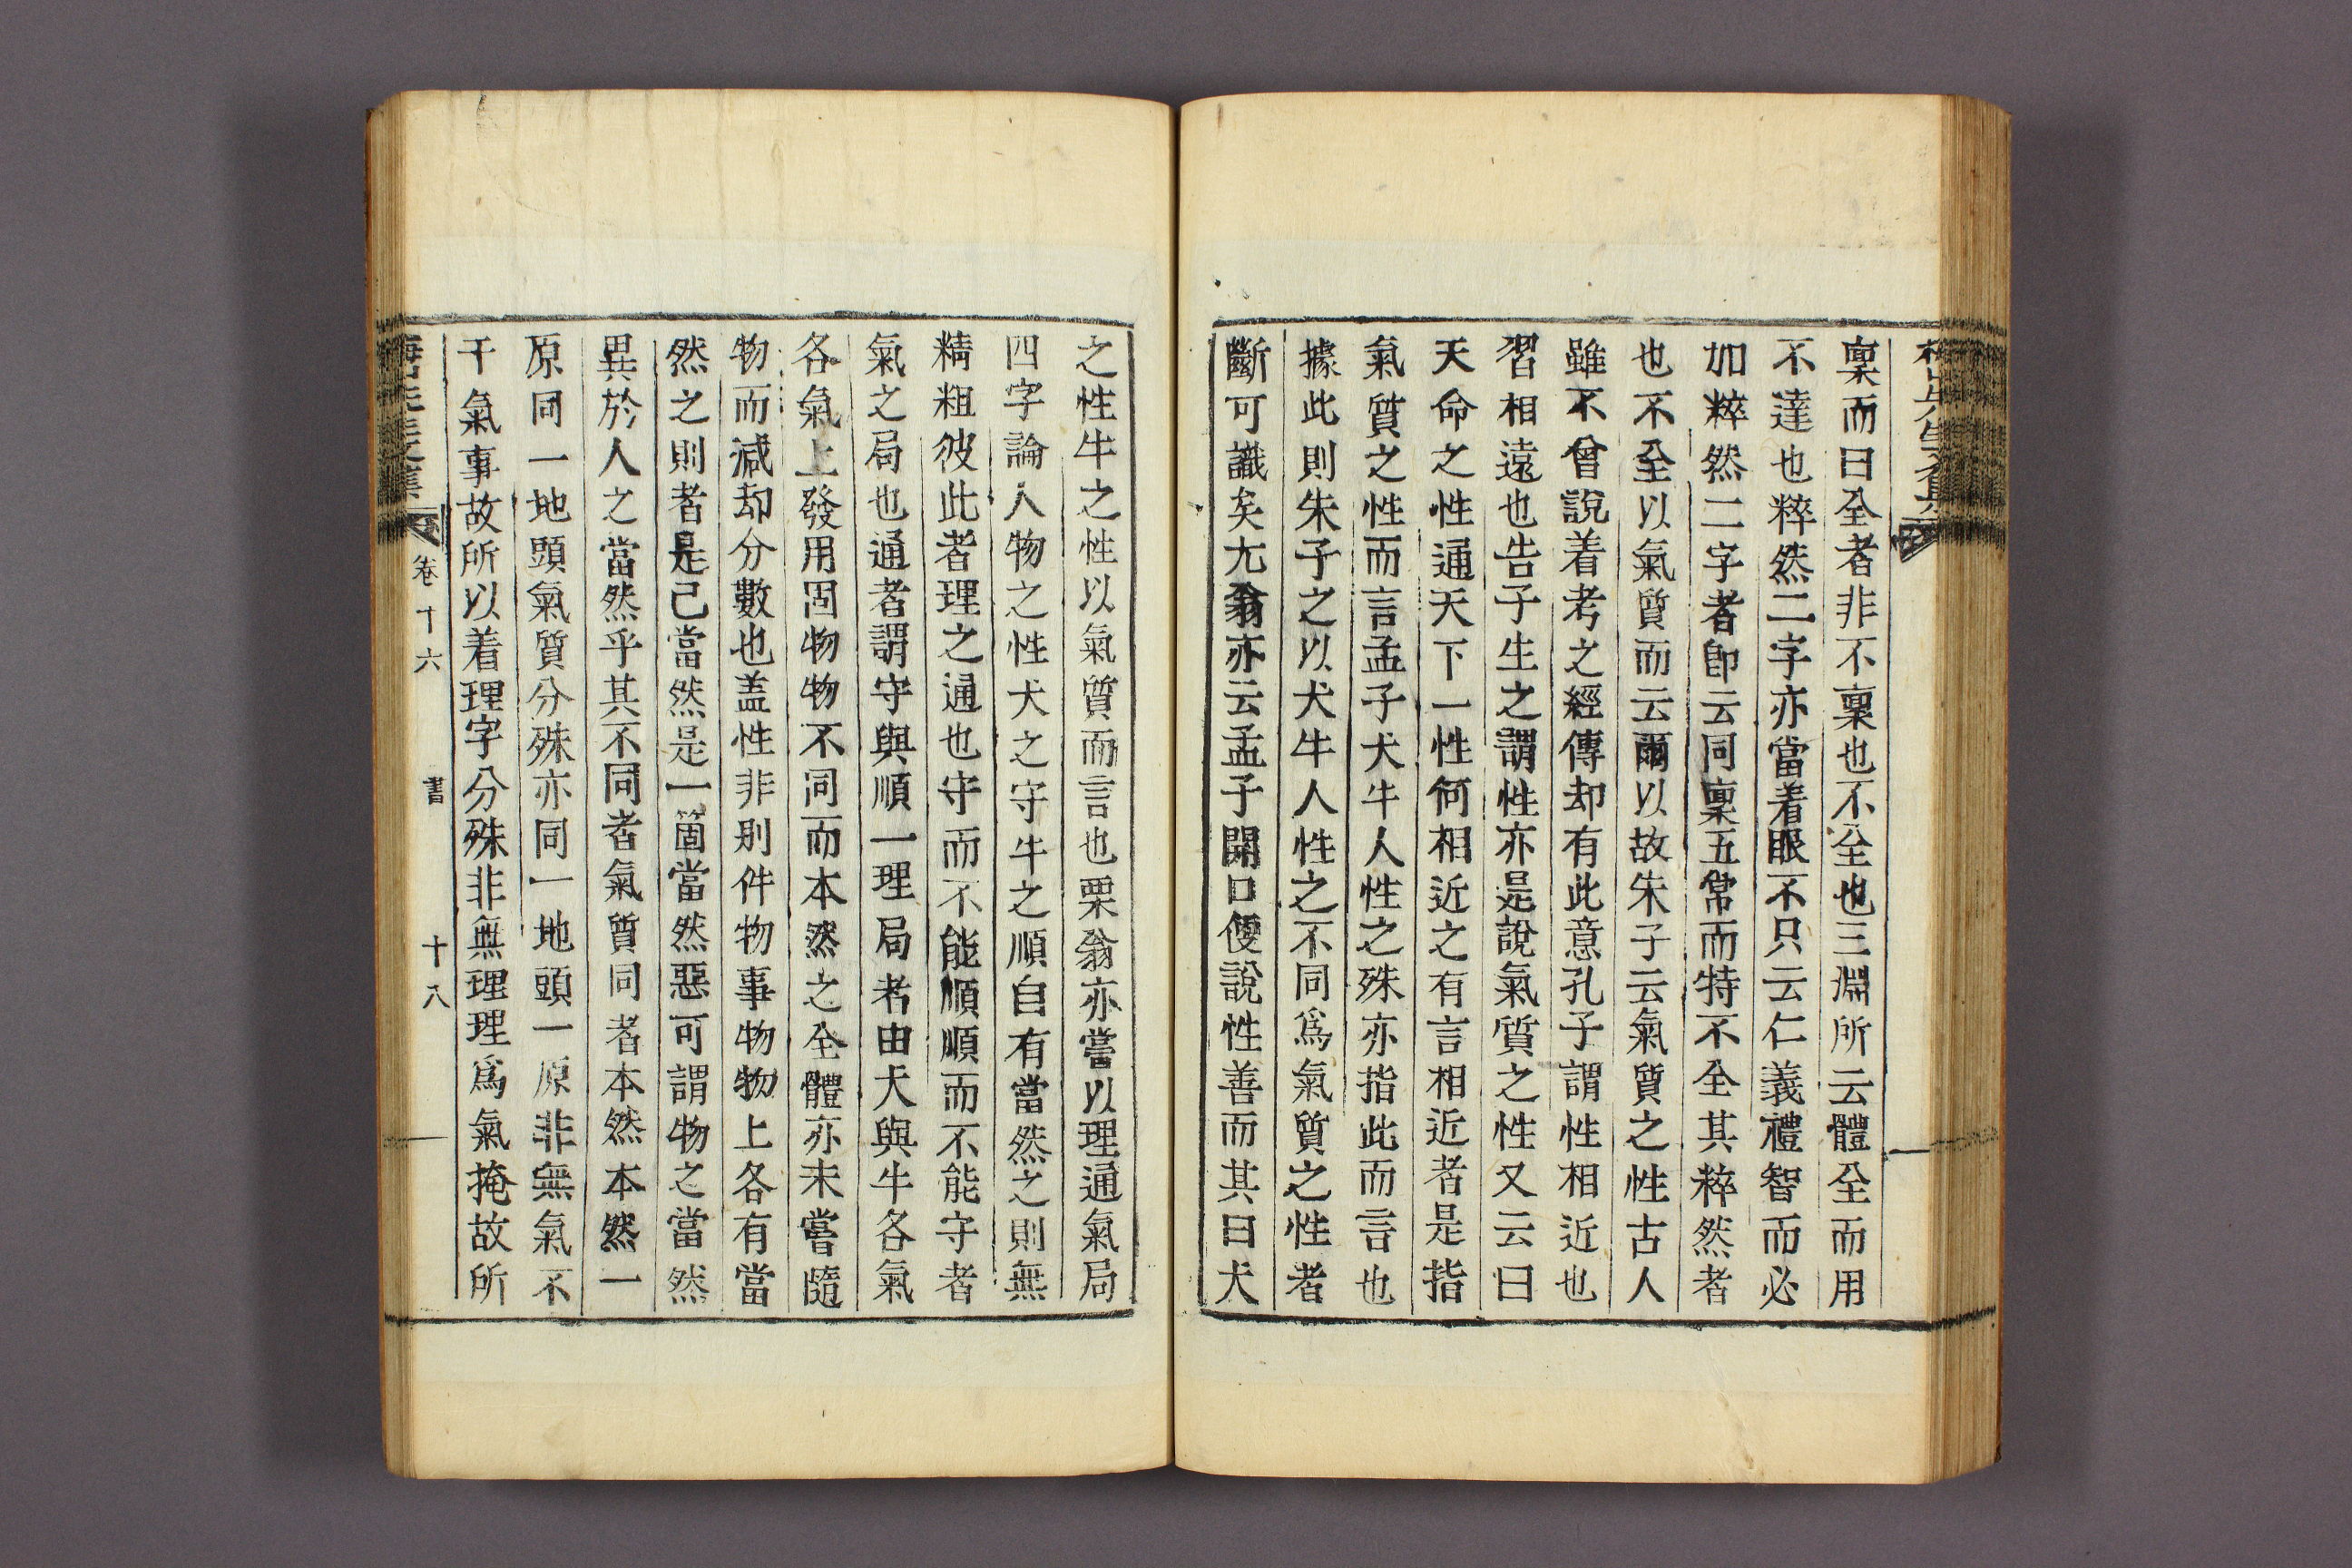 稟而曰全者非不稟也不全也三淵所云體全而用
不達也粹然二字亦當着眼不只云仁義禮智而必
加粹然二字者卽云同稟五常而特不全其粹然者
也不全以氣質而云爾以故朱子云氣質之性古人
雖不曾說着考之經傳却有此意孔子謂性相近也
習相遠也告子生之謂性亦是說氣質之性又云曰
天命之性通天下一性何相近之有言相近者是指
氣質之性而言孟子犬牛人性之殊亦指此而言也
據此則朱子之以犬牛人性之不同爲氣質之性者
斷可識矣尤翁亦云孟子開口便說性善而其曰犬
之性牛之性以氣質而言也栗翁亦嘗以理通氣局
四字論人物之性犬之守牛之順自有當然之則無
精粗彼此者理之通也守而不能順順而不能守者
氣之局也通者謂守與順一理局者由犬與牛各氣
各氣上發用固物物不同而本然之全體亦未嘗隨
物而減却分數也盖性非別件物事物物上各有當
然之則者是已當然是一箇當然惡可謂物之當然
異於人之當然乎其不同者氣質同者本然本然一
原同一地頭氣質分殊亦同一地頭一原非無氣不
干氣事故所以着理字分殊非無理理爲氣掩故所
卷十六 書 十八